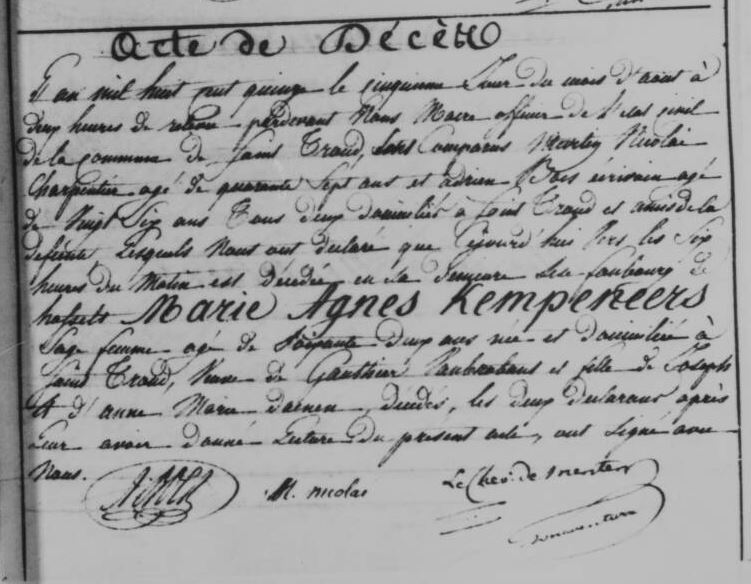 Acte de Décès
L'an mil huit cent quinze le cinquieme Jour du mois d'aout à
deux heures de relevée pardevant Nous Maire officier de l'etat civil
de la commune de Saint Trond, sont Comparus Martin Nicolai
Charpentier agé de quarante Sept ans et adrien Bois écrivain agé
de Vingt Six ans Tous deux domiciliés à Saint Trond et amis de la
defunte, Lesquels Nous ont declaré que Cejourd'hui Vers les Six
heures du Matin est Décedée en sa demeure Sise faubourg de
hasselt Marie Agnes Kempeneers
Sage femme agé de Soixante deux ans née et domiciliée à
Saint Trond, Veuve de Gauthier Vanbrabant et fille de Joseph
et d'anne Marie daenen, décedés, les deux declarans après
Leur avoir donné Lecture du présent acte, ont Signé avec
Nous.
M. nicolai Le Chev. de menten